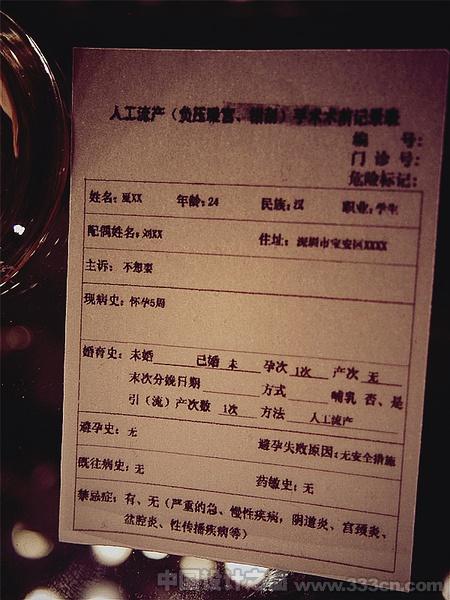 人工流产（负压吸宫、钳刮）手术术前记录表
编 号：
门 诊 号：
危险标记：
姓名：夏XX 年龄：24 民族：汉 职业：学生
配偶姓名：刘XX 住址：深圳市宝安区XXXX
主诉：不想要
现病史：怀孕5周
婚育史：未婚 已婚 未 孕次 1次 产次 无
末次分娩日期 方式 哺乳 否、是
引（流）产次数 1次 方法 人工流产
避孕史：无 避孕失败原因：无安全措施
既往病史：无 药敏史：无
禁忌症：有、无（严重的急、慢性疾病，阴道炎、宫颈炎、
盆腔炎、性传播疾病等）
中国设计之窗 www.333cn.com